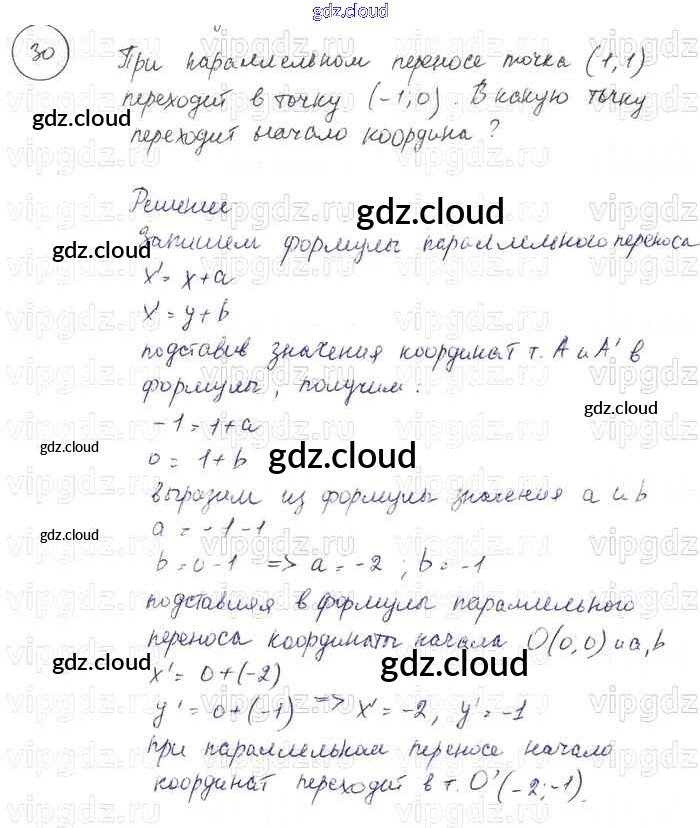 gdz.cloud
30
При параллельном переносе точка (1,1)
переходит в точку (-1;0). В какую точку
gdz.cloud
переходит начало координа?
Решение
gdz.cloud
Запишем формулы параллельного переноса
gdz.cloud
x' = x+a
x' = y+b
подставив значения координат т. A и A' в
формулы, получим:
gdz.cloud
-1 = 1+a
gdz.cloud
0 = 1+b
gdz.cloud
выразим из формулы значения a и b
a = -1-1
gdz.cloud
b = 0-1 => a = -2 ; b = -1
подставляя в формулы параллельного
переноса координаты начала O(0,0) и a,b
gdz.cloud
gdz.cloud
x' = 0+(-2)
y' = 0+(-1) => x' = -2, y' = -1
gdz.cloud
при параллельном переносе начало
координат переходит в т. O'(-2;-1).
vipgdz.ru